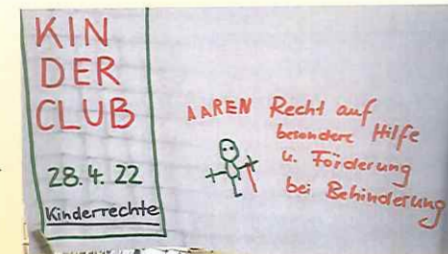 KIN
DER
CLUB
28.4.22
Kinderrechte
AAREN Recht auf
besondere Hilfe
u. Förderung
bei Behinderung